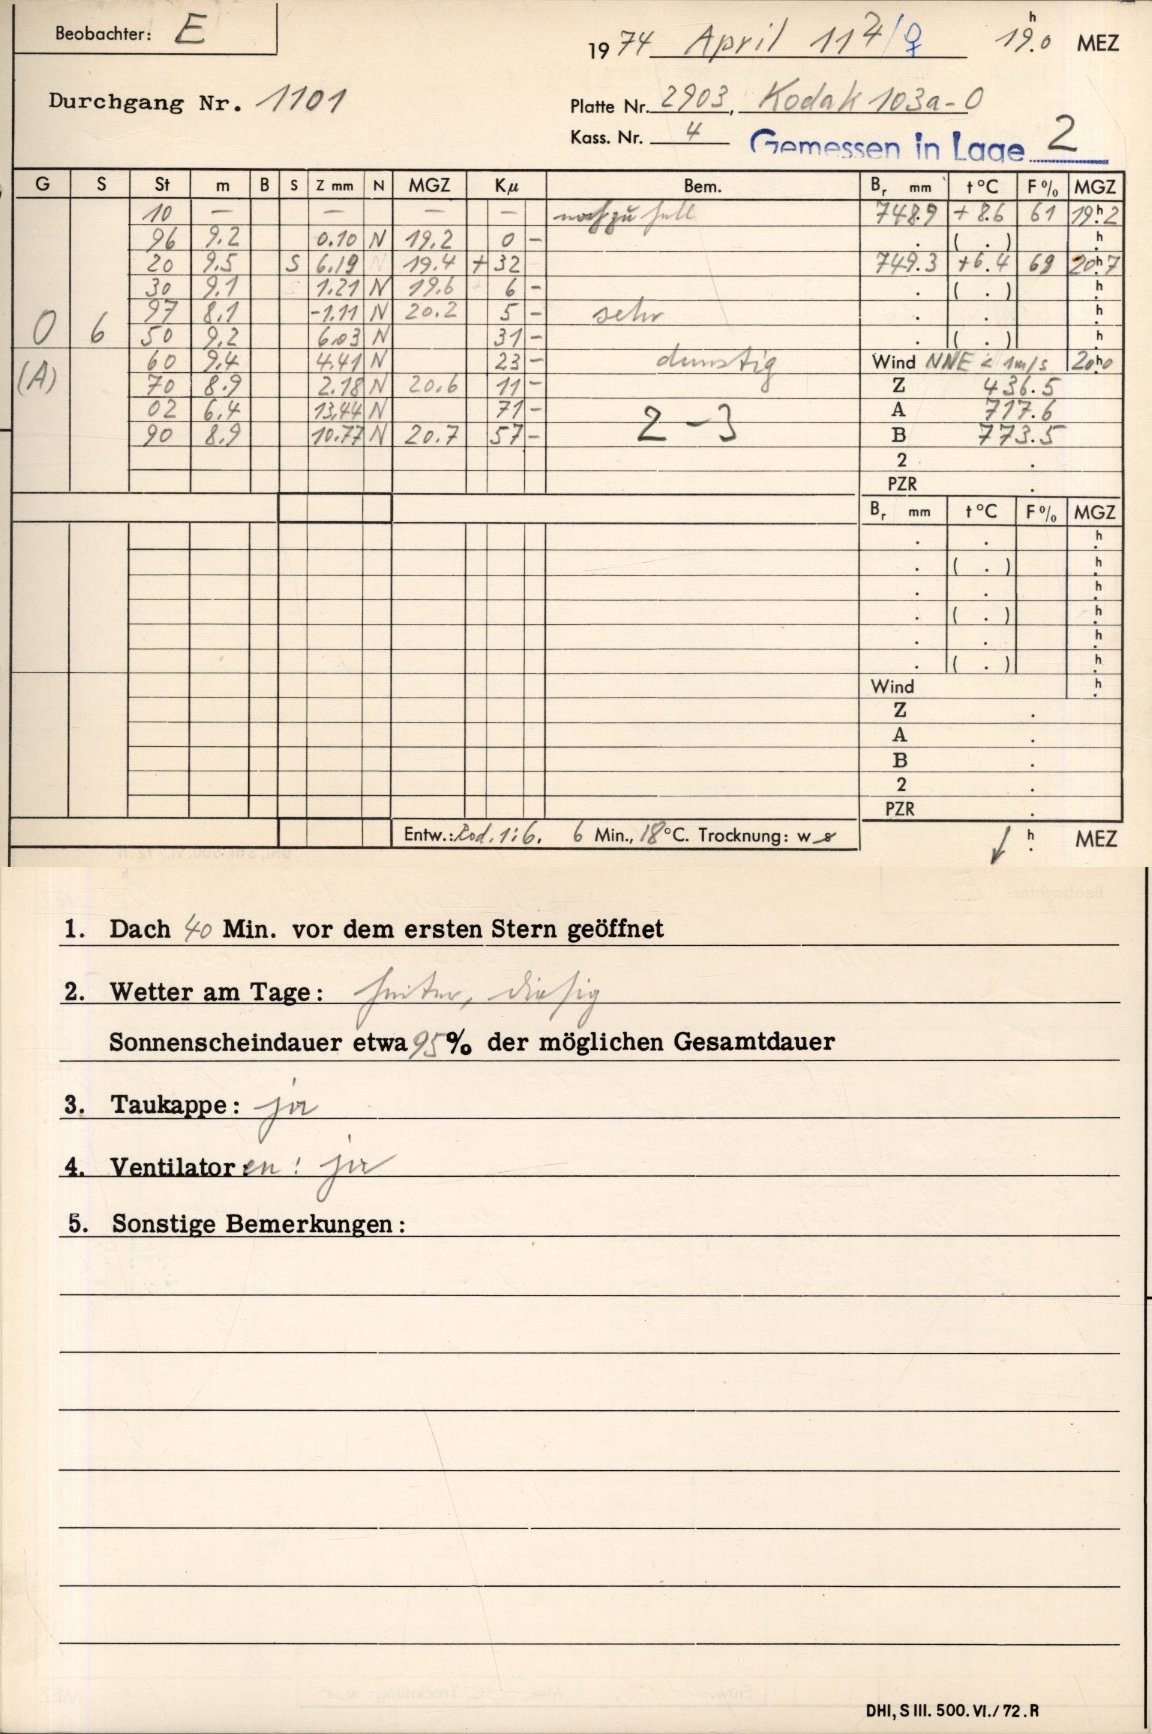 Beobachter: E
1974 April 11 2/♀ 19h.0 MEZ
Durchgang Nr. 1101
Platte Nr. 2903, Kodak 103a-O
Kass. Nr. 4 Gemessen in Lage 2
G S St m B S Z mm N MGZ Kμ Bem. Br mm t °C F % MGZ
10 — — — — noch zu hell 748.9 +8.6 61 19h.2
96 9.2 0.10 N 19.2 0 - . ( . ) h.
20 9.5 S 6.19 19.4 + 32 749.3 +6.4 69 20h.7
30 9.1 1.21 N 19.6 6 - . ( . ) h.
97 8.1 -1.11 N 20.2 5 - sehr . . h.
0 6 50 9.2 6.03 N 31 - . ( . ) h.
60 9.4 4.41 N 23 - dunstig Wind NNE < 1m/s 20h.0
(A) 70 8.9 2.18 N 20.6 11 - Z 436.5
02 6.4 13.44 N 71 - 2-3 A 717.6
90 8.9 10.77 N 20.7 57 - B 773.5
2 .
PZR .
Br mm t °C F % MGZ
. . h.
. ( . ) h.
. . h.
. ( . ) h.
. . h.
. ( . ) h.
Wind h.
Z .
A .
B .
2 .
PZR .
Entw.: Rod. 1:6. 6 Min., 18 °C. Trocknung: w s
h. MEZ
1. Dach 40 Min. vor dem ersten Stern geöffnet
2. Wetter am Tage: heiter, diesig
Sonnenscheindauer etwa 95 % der möglichen Gesamtdauer
3. Taukappe: ja
4. Ventilator: en! ja
5. Sonstige Bemerkungen:
DHI, S III. 500. VI./72. R